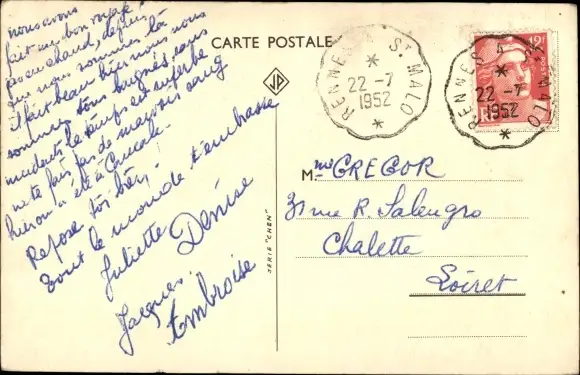 nous avons
fait un bon voyage
peu chaud, depuis
que nous sommes là
il fait beau hier nous nous
sommes tous baignés sans
le temps est superbe
ne te fais pas de mauvais sang
hier on a été à Cancale.
Repose toi bien,
tout le monde t'embrasse
Juliette Denise
Jacques.
Ambroise
CARTE POSTALE
JP
SERIE "CHEN"
RENNES A ST MALO
22 -7
1952
12F
RENNES A ST MALO
22 -7
1952
M me GREGOR
31 rue R. Salengro
Chalette
Loiret